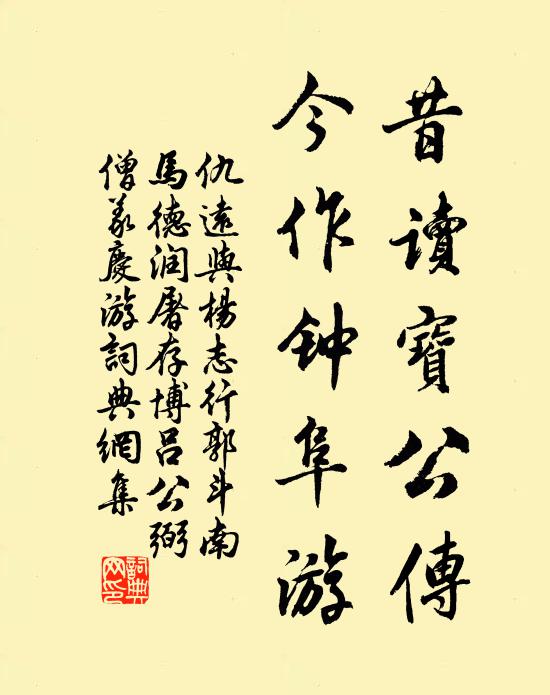 昔讀寶公傳
今作钟阜游
仇遠與楊志行郭斗南
馬德润屠存博吕公弼
僧義慶游詞典網集
詞典网印